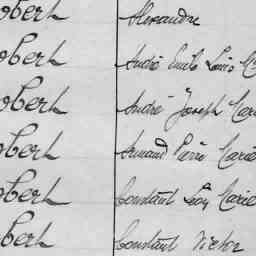 obert Alexandre
obert André Emile Louis
obert André Joseph Mari
obert Armand Pierre Marie
obert Constant Marie
obert Constant Victor